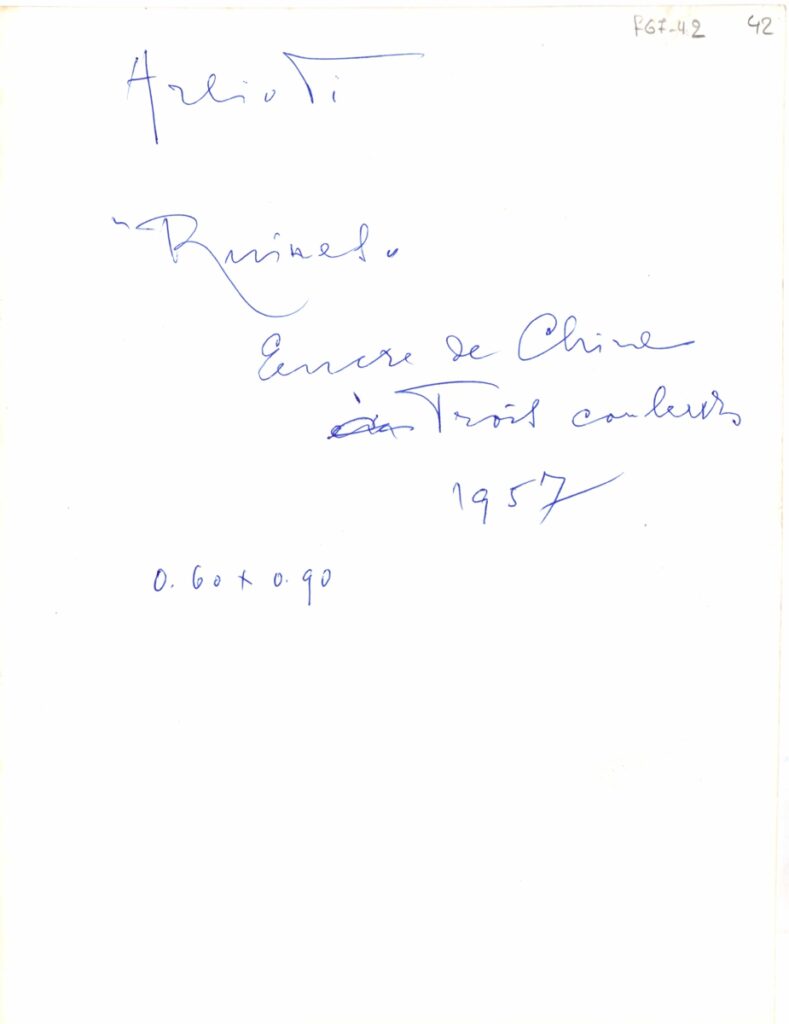 F67-42 42
Arlioti
"Ruines"
Encre de Chine
à Trois couleurs
1957
0.60 x 0.90